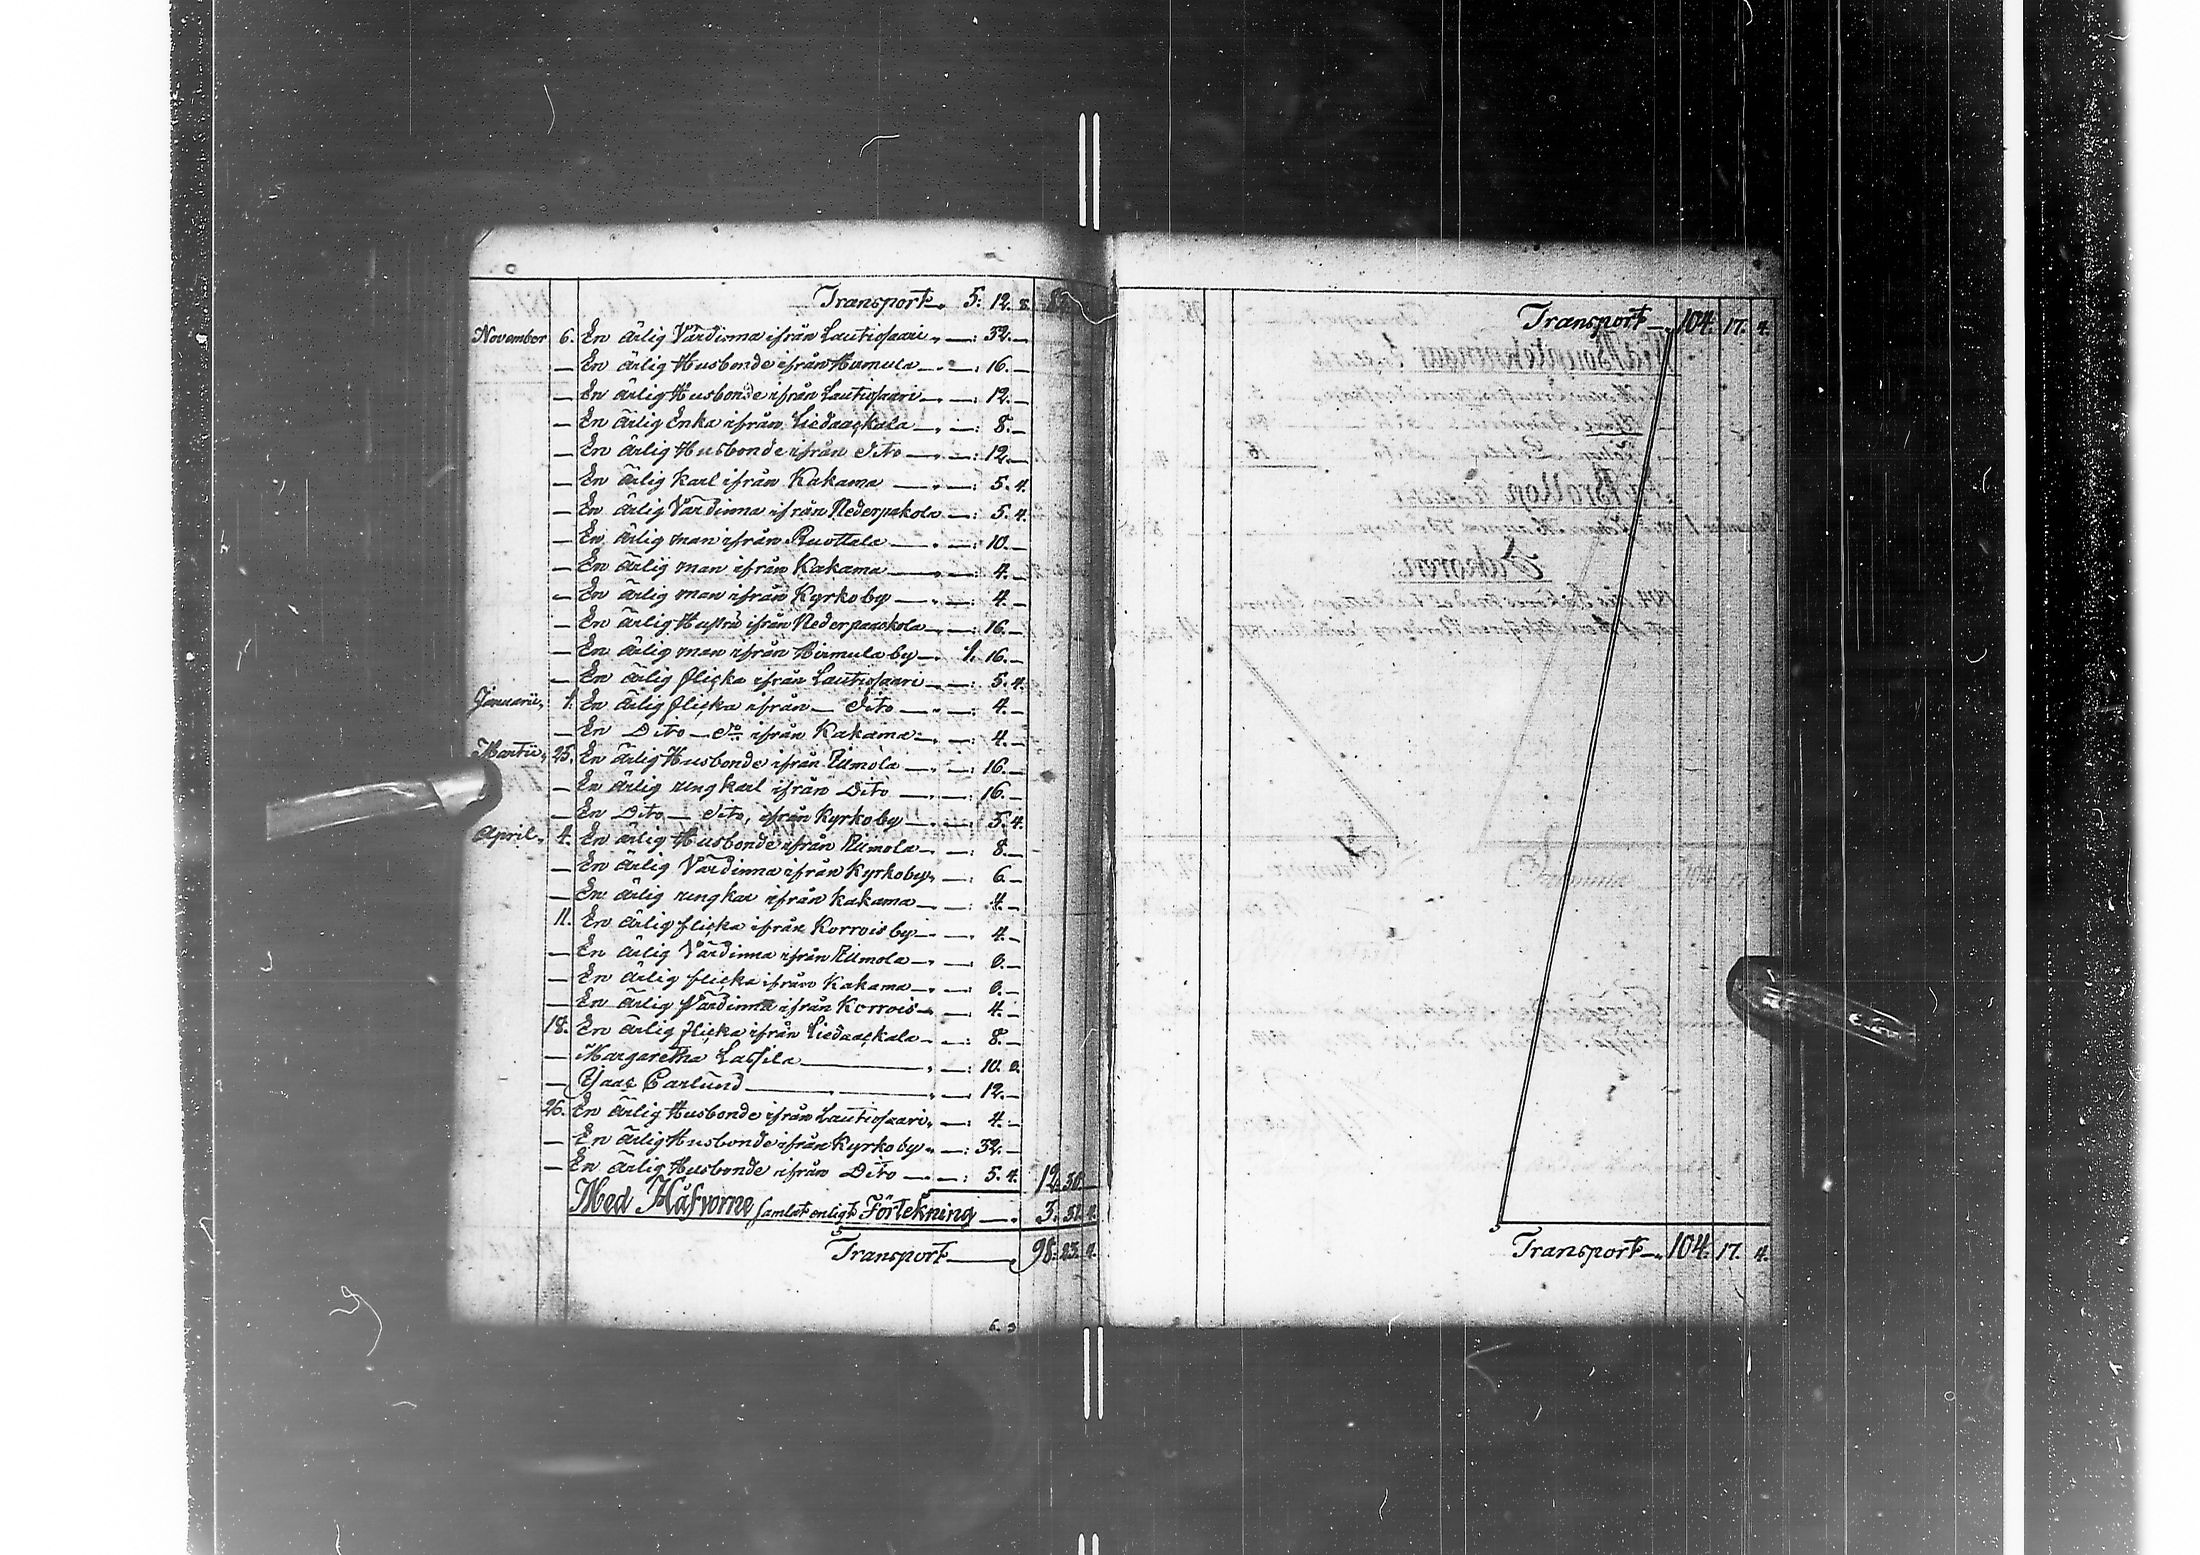 Transport 5. 12. 8.
November 6. En ärlig Värdinna ifrån Lautiosaari — 32. —
— En ärlig Husbonde ifrån Hirmula — 16. —
— En ärlig Husbonde ifrån Lautiosaari — 12. —
— En ärlig Enka ifrån Liedaackala — 8. —
— En ärlig Husbonde ifrån dito — 12. —
— En ärlig karl ifrån Kakama — 5. 4.
— En ärlig Värdinna ifrån Nederpakola — 5. 4.
— En ärlig man ifrån Ruottala — 10. —
— En ärlig man ifrån Kakama — 4. —
— En ärlig man ifrån Kyrkoby — 4. —
— En ärlig Hustru ifrån Nederpaackola — 16. —
— En ärlig man ifrån Hirmula by — 1. 16. —
— En ärlig flicka ifrån Lautiosaari — 5. 4.
Januarii, 1. En ärlig flicka ifrån — dito — 4. —
— En Dito — do ifrån Kakama — 4. —
Martii, 25. En ärlig Husbonde ifrån Rumola — 16. —
— En ärlig ung karl ifrån Dito — 16. —
— En Dito — dito, ifrån Kyrkoby — 5. 4.
April, 4. En ärlig Husbonde ifrån Rumola — 8. —
— En ärlig Värdinna ifrån Kyrkoby — 6. —
— En ärlig ung kar ifrån Kakama — 4. —
11. En ärlig flicka ifrån Korrois by — 4. —
— En ärlig Värdinna ifrån Rumola —
— En ärlig flicka ifrån Kakama —
— En ärlig Värdinna ifrån Korrois — 4. —
18. En ärlig flicka ifrån Liedaackala — 8. —
— Margaretha Lassila — 10.
— Carlund — 12. —
26. En ärlig Husbonde ifrån Lautiosaari — 4. —
— En ärlig Husbonde ifrån Kyrkoby — 32. —
— En ärlig Husbonde ifrån Dito — 5. 4. 12. 30. —
Med Håfvorne samlat enligt Förtekning — 3.
Transport — 98. 23.
Transport — 104. 17. 4.
Transport — 104. 17. 4.